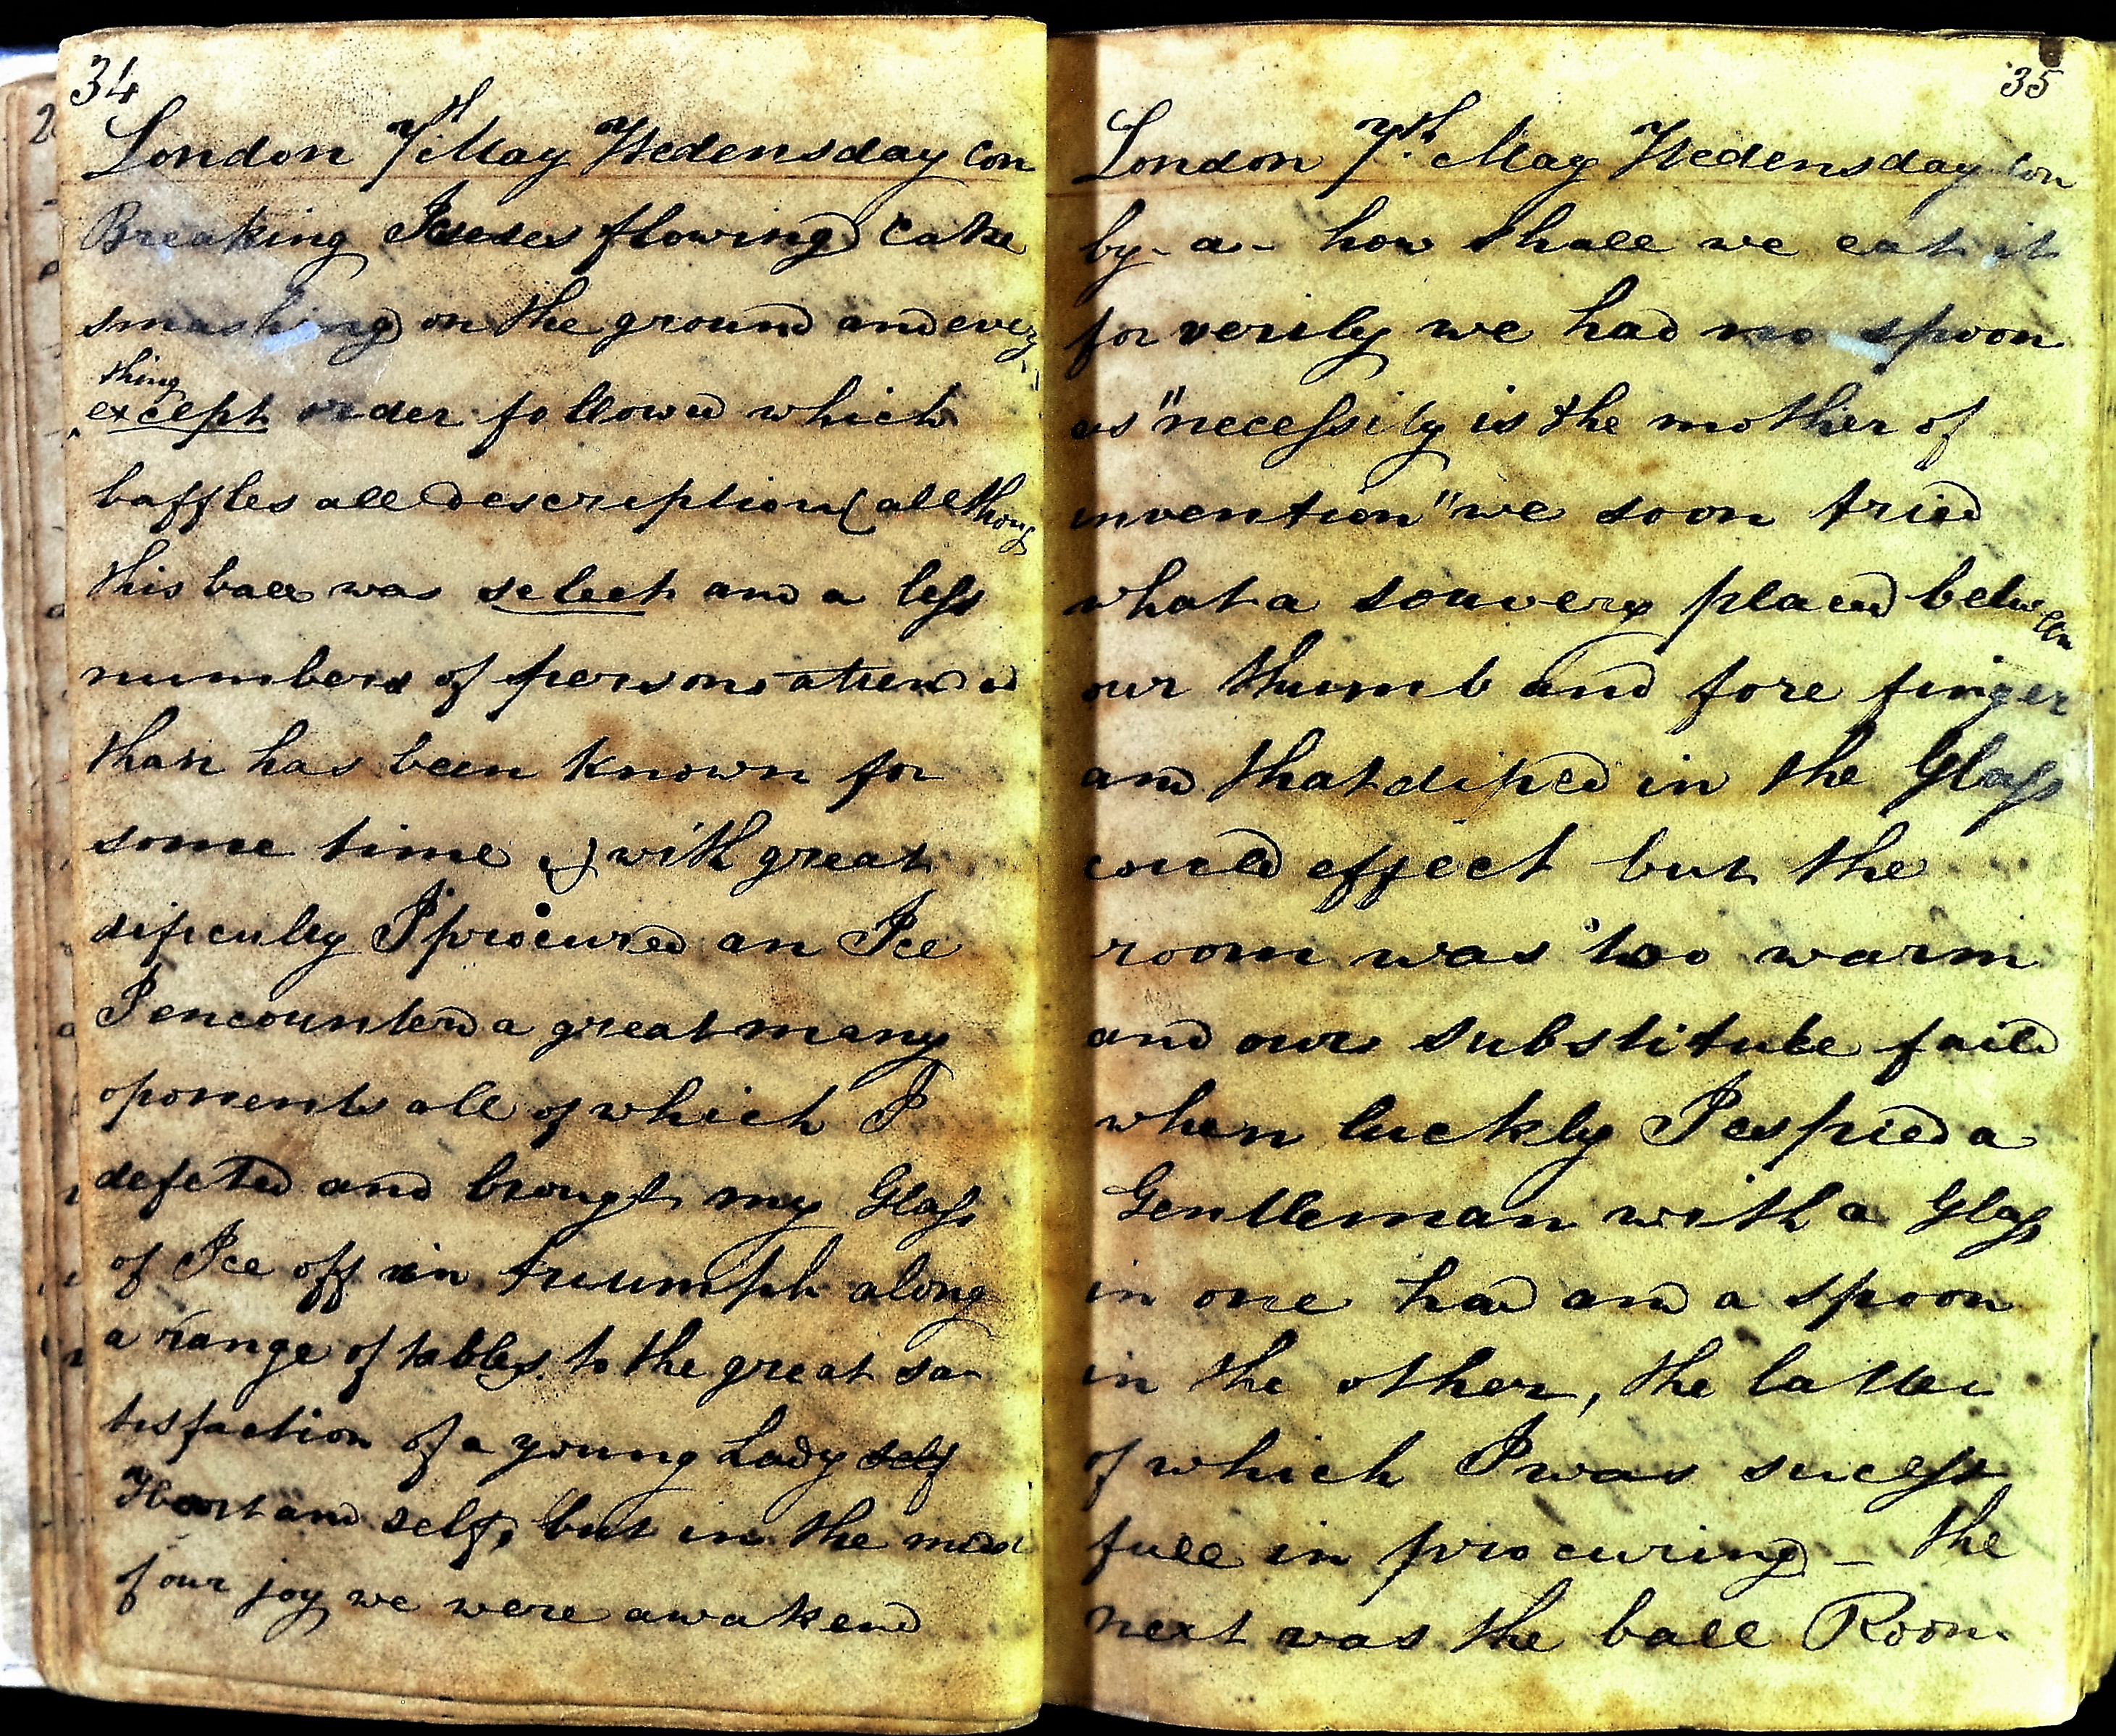 34
London 7th May Wedensday Con
Breaking Iceses flowing Cake
smashing on the ground and every
thing
except order followed which
baffles all description (allthoug
this ball was select and a less
numbers of persons attended
than has been known for
some time ) with great
dificulty I procured an Ice
I encounterd a great many
oponents all of which I
defeted and brought my Glass
of Ice off in triumph along
a range of tables to the great sa-
tisfaction of a young Lady self
and self, but in the midst
of our joy we were awakend
35
London 7th May Wedensday Con
by - a - how shall we eat it
for verily we had no spoon
as "necessity is the mother of
invention" we soon tried
what a souvery placed between
our thumb and fore finger
and that diped in the Glass
could effect but the
room was too warm
and our substitute faild
when luckly I espied a
Gentleman with a Glass
in one had and a spoon
in the other, the latter
of which I was sucess
full in procuring - the
next was the ball Room